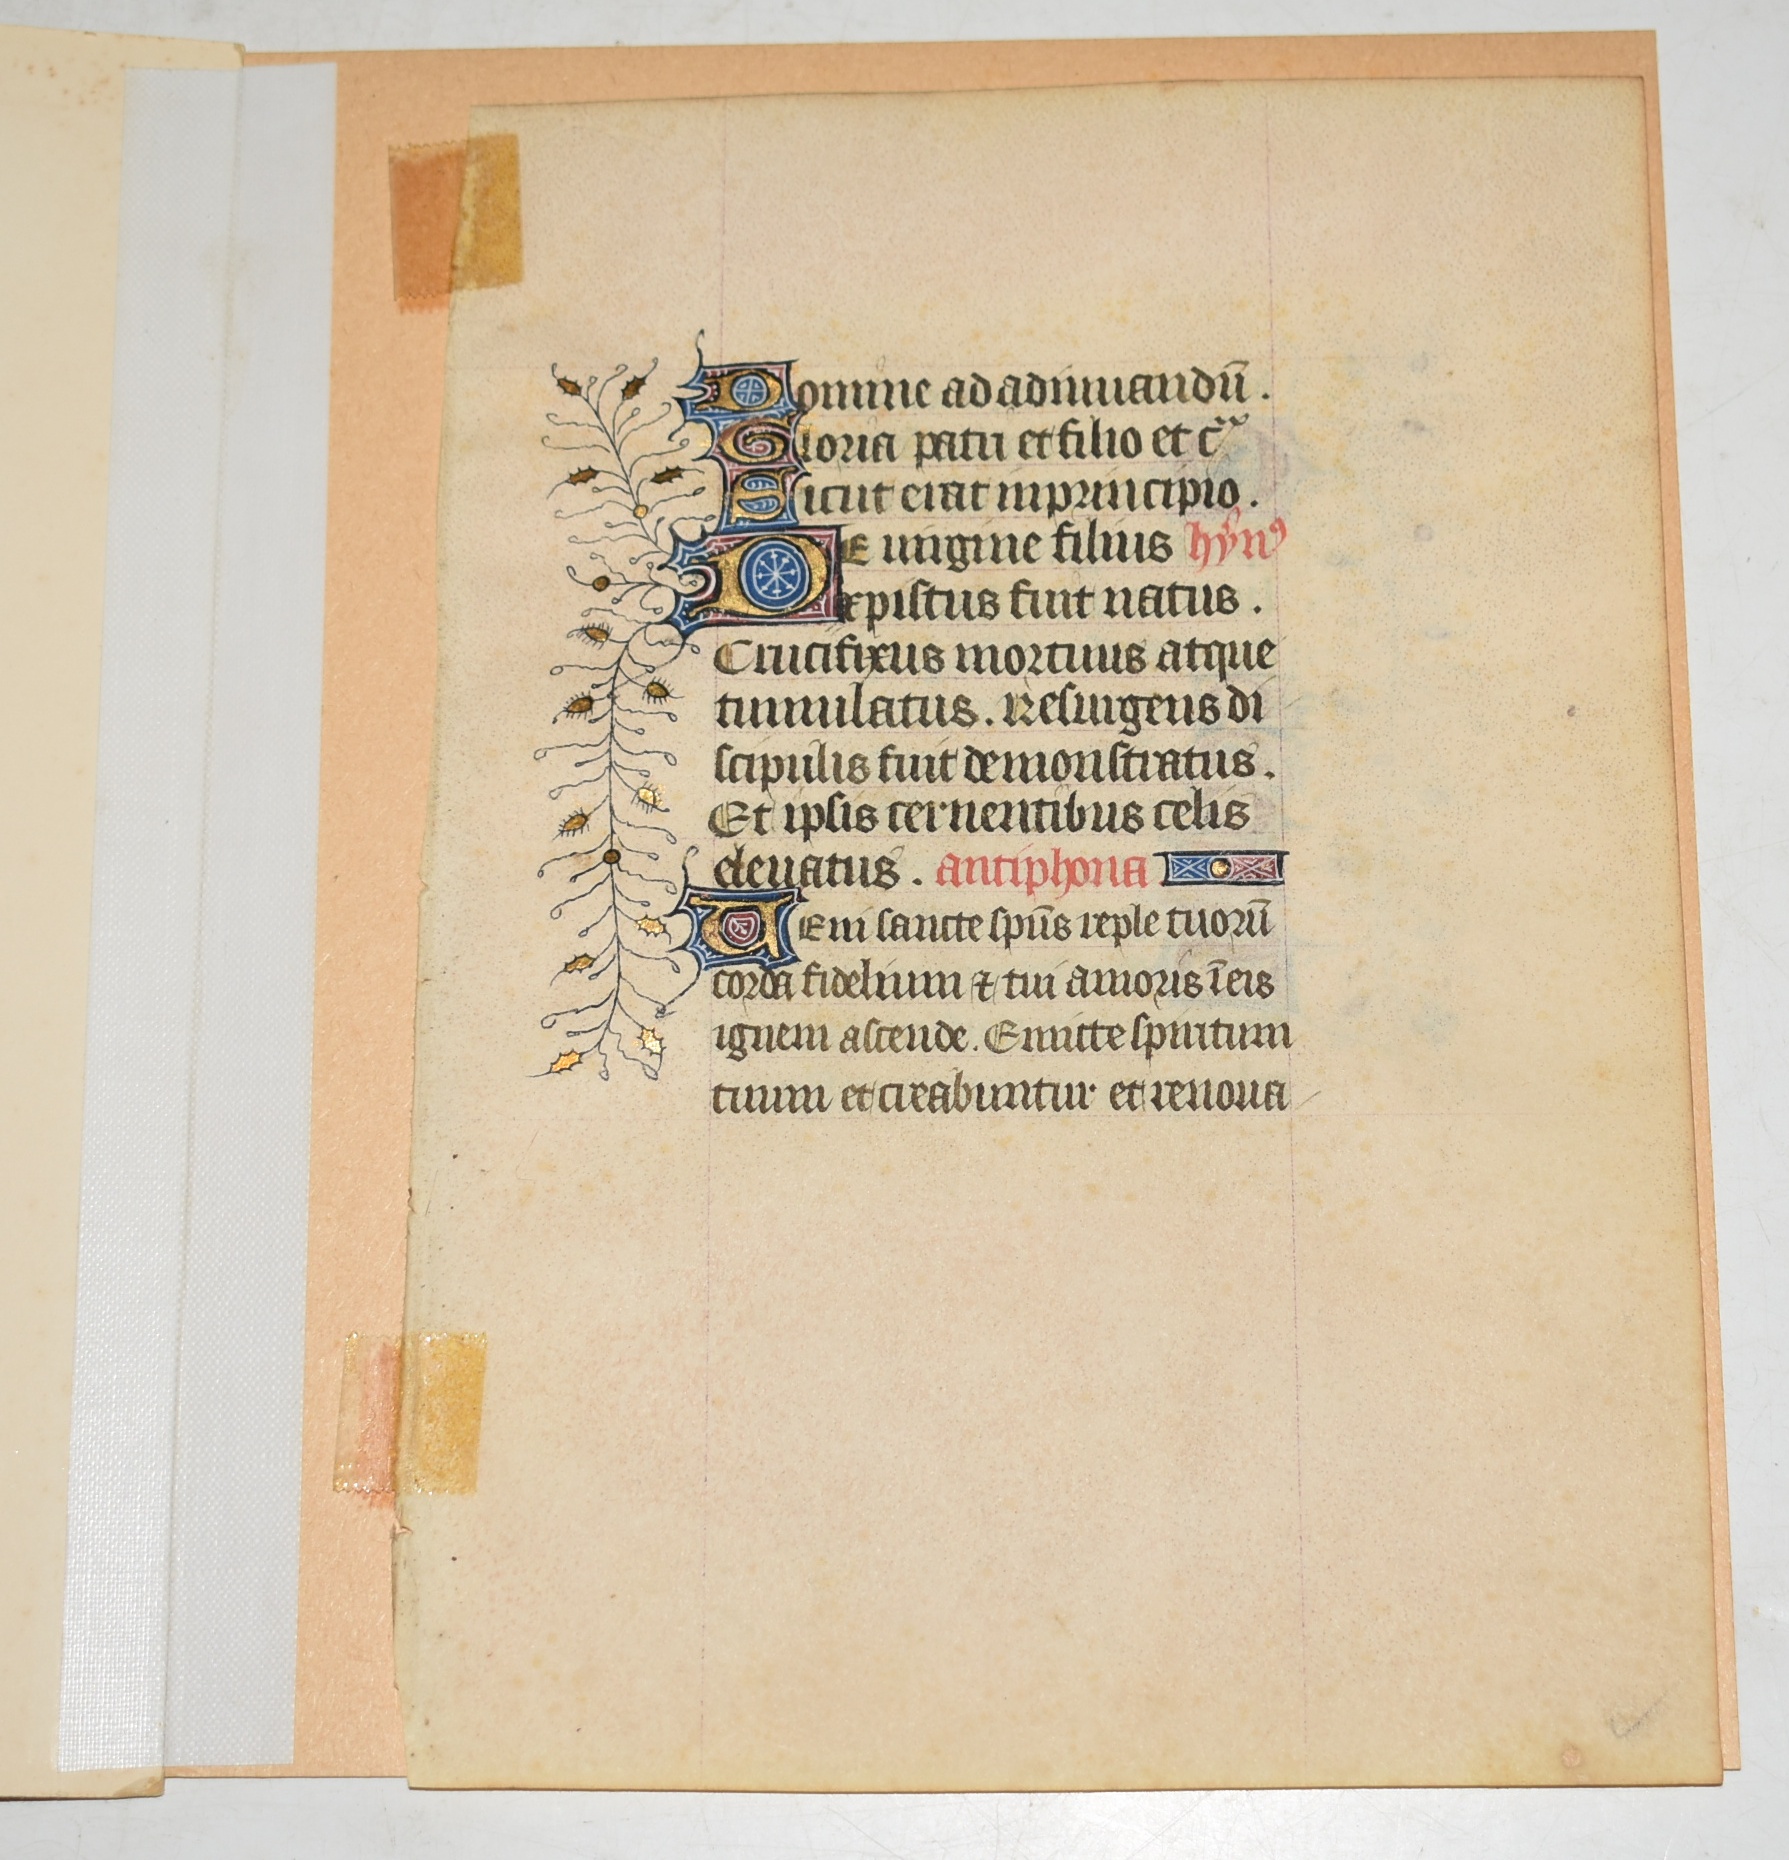 Domine ad adiuuandū .
Gloria patri et filio et c̄
Sicut erat in principio .
DE uirgine filius hỹnꝰ
xpistus fuit natus .
Crucifixus mortuus atque
tumulatus . Resurgens di
scipulis fuit demonstratus .
Et ipsis cernentibus celis
eleuatus . antiphona
UEni sancte sp̄us reple tuorū
corda fidelium ⁊ tui amoris ī eis
ignem ascende . Emitte spiritum
tuum et creabuntur et renoua